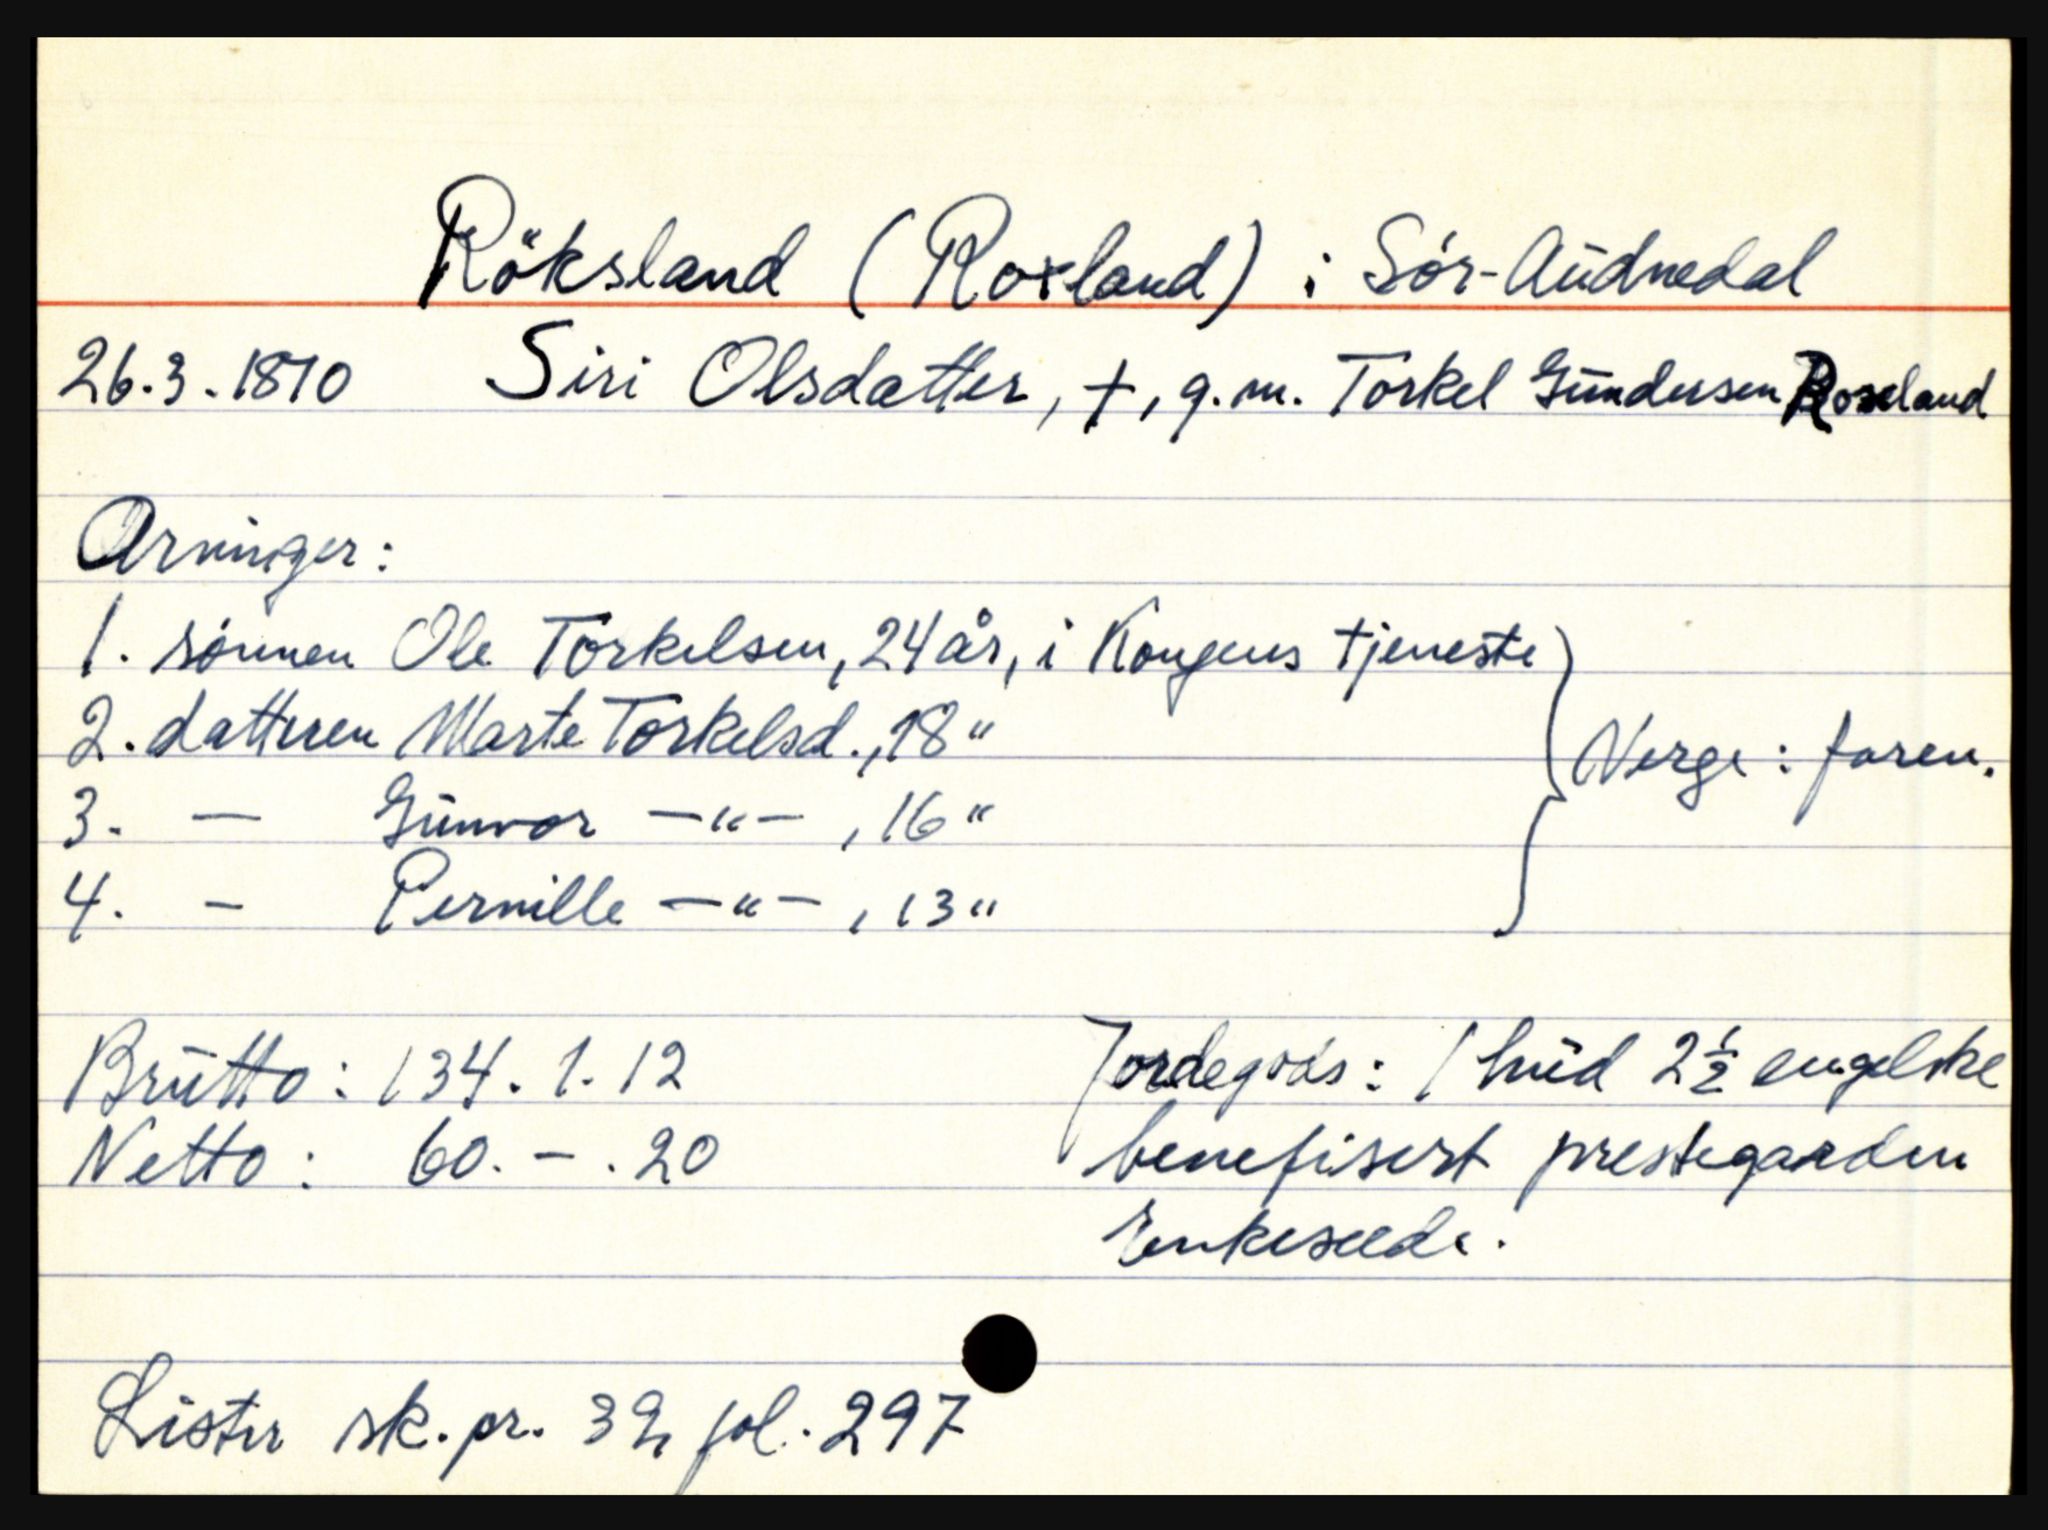 Röksland (Roxland) i Sör-Audnedal
26.3.1810 Siri Olsdatter, †, g.m. Torkel Gundersen Roxland
Arvinger:
1. sönnen Ole Torkelsen, 24 år, i Kongens tjeneste
2. datteren Marte Torkelsd., 18 "
3. — Gunvor —"— , 16 "
4. — Pernille —"— , 13 "
Verge: faren.
Brutto: 134. 1. 12
Netto: 60. - . 20
Jordegods: 1 hud 2½ engelske
benefisert prestegarden
enkesæde.
Lister sk. pr. fol. 297